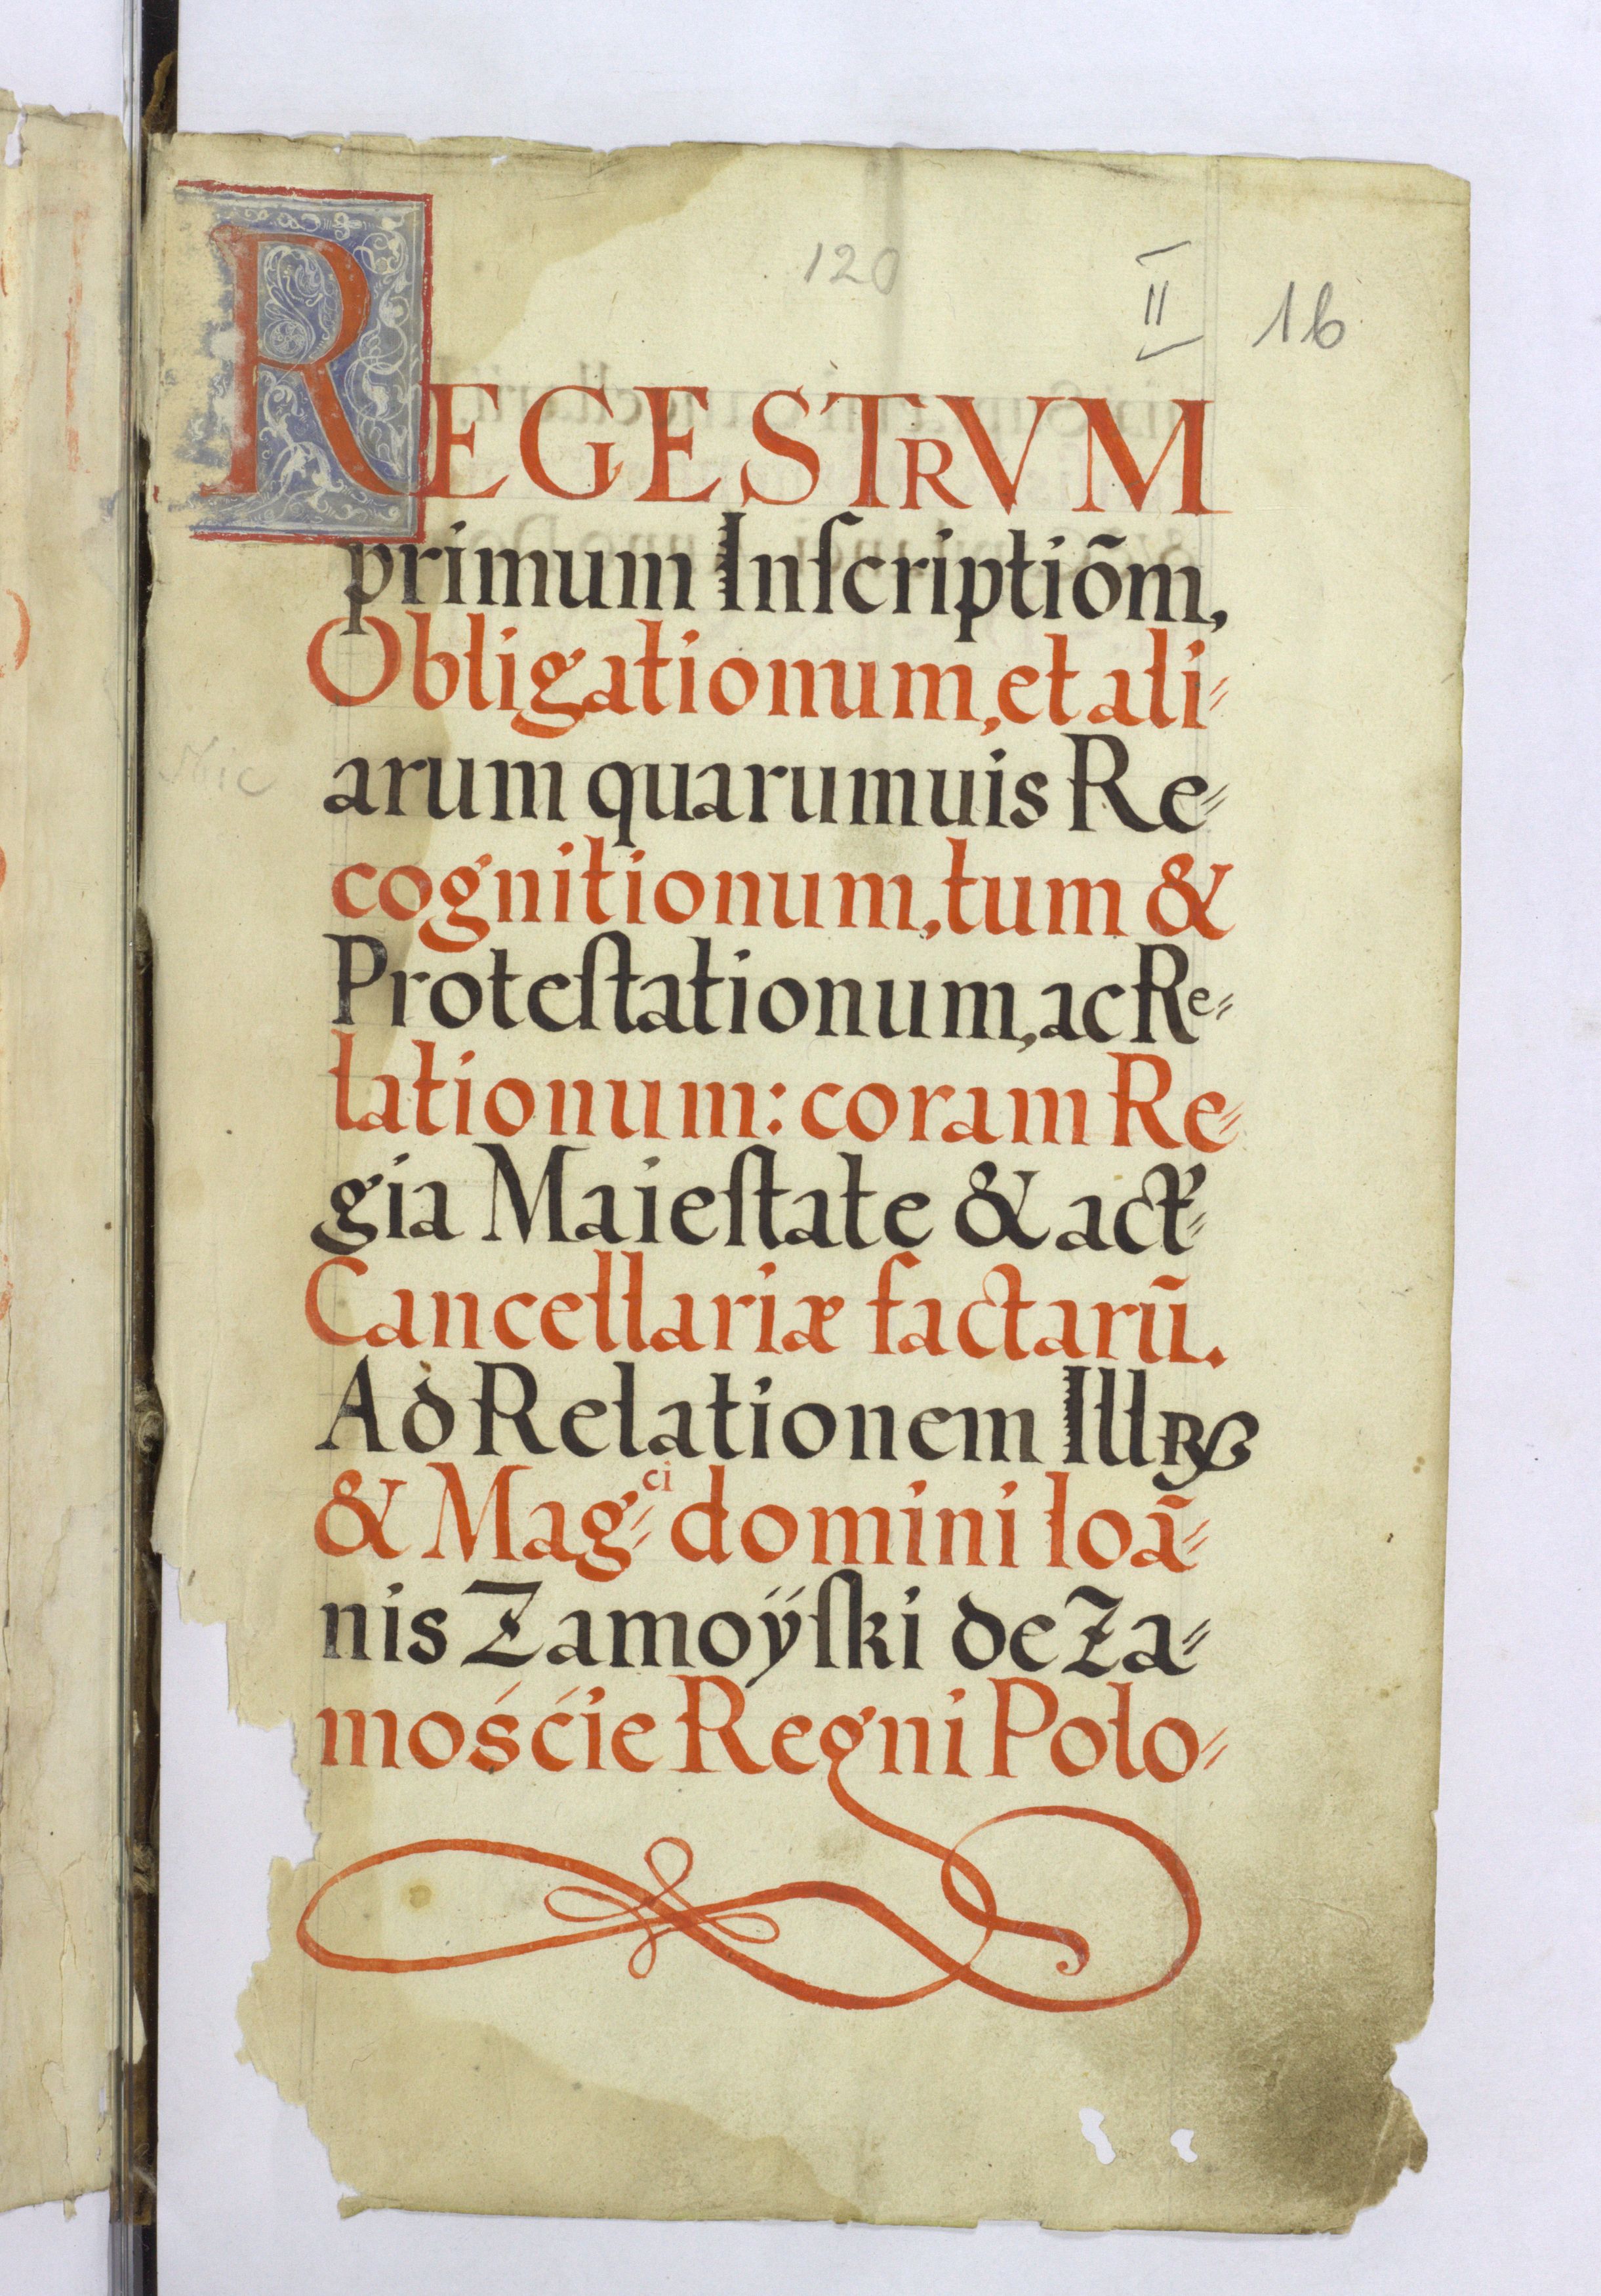 120
II 16
REGESTRVM
primum Inſcriptiõm,
Obligationum, et ali⸗
arum quarumuis Re⸗
cognitionum, tum &
Proteſtationum, ac Re⸗
lationum: coram Re⸗
gia Maieſtate & act⸗
Cancellariæ factarũ.
Ad Relationem Illrß
& Mag⸗ci domini Ioã⸗
nis Zamoÿſki de Za⸗
mośćie Regni Polo⸗